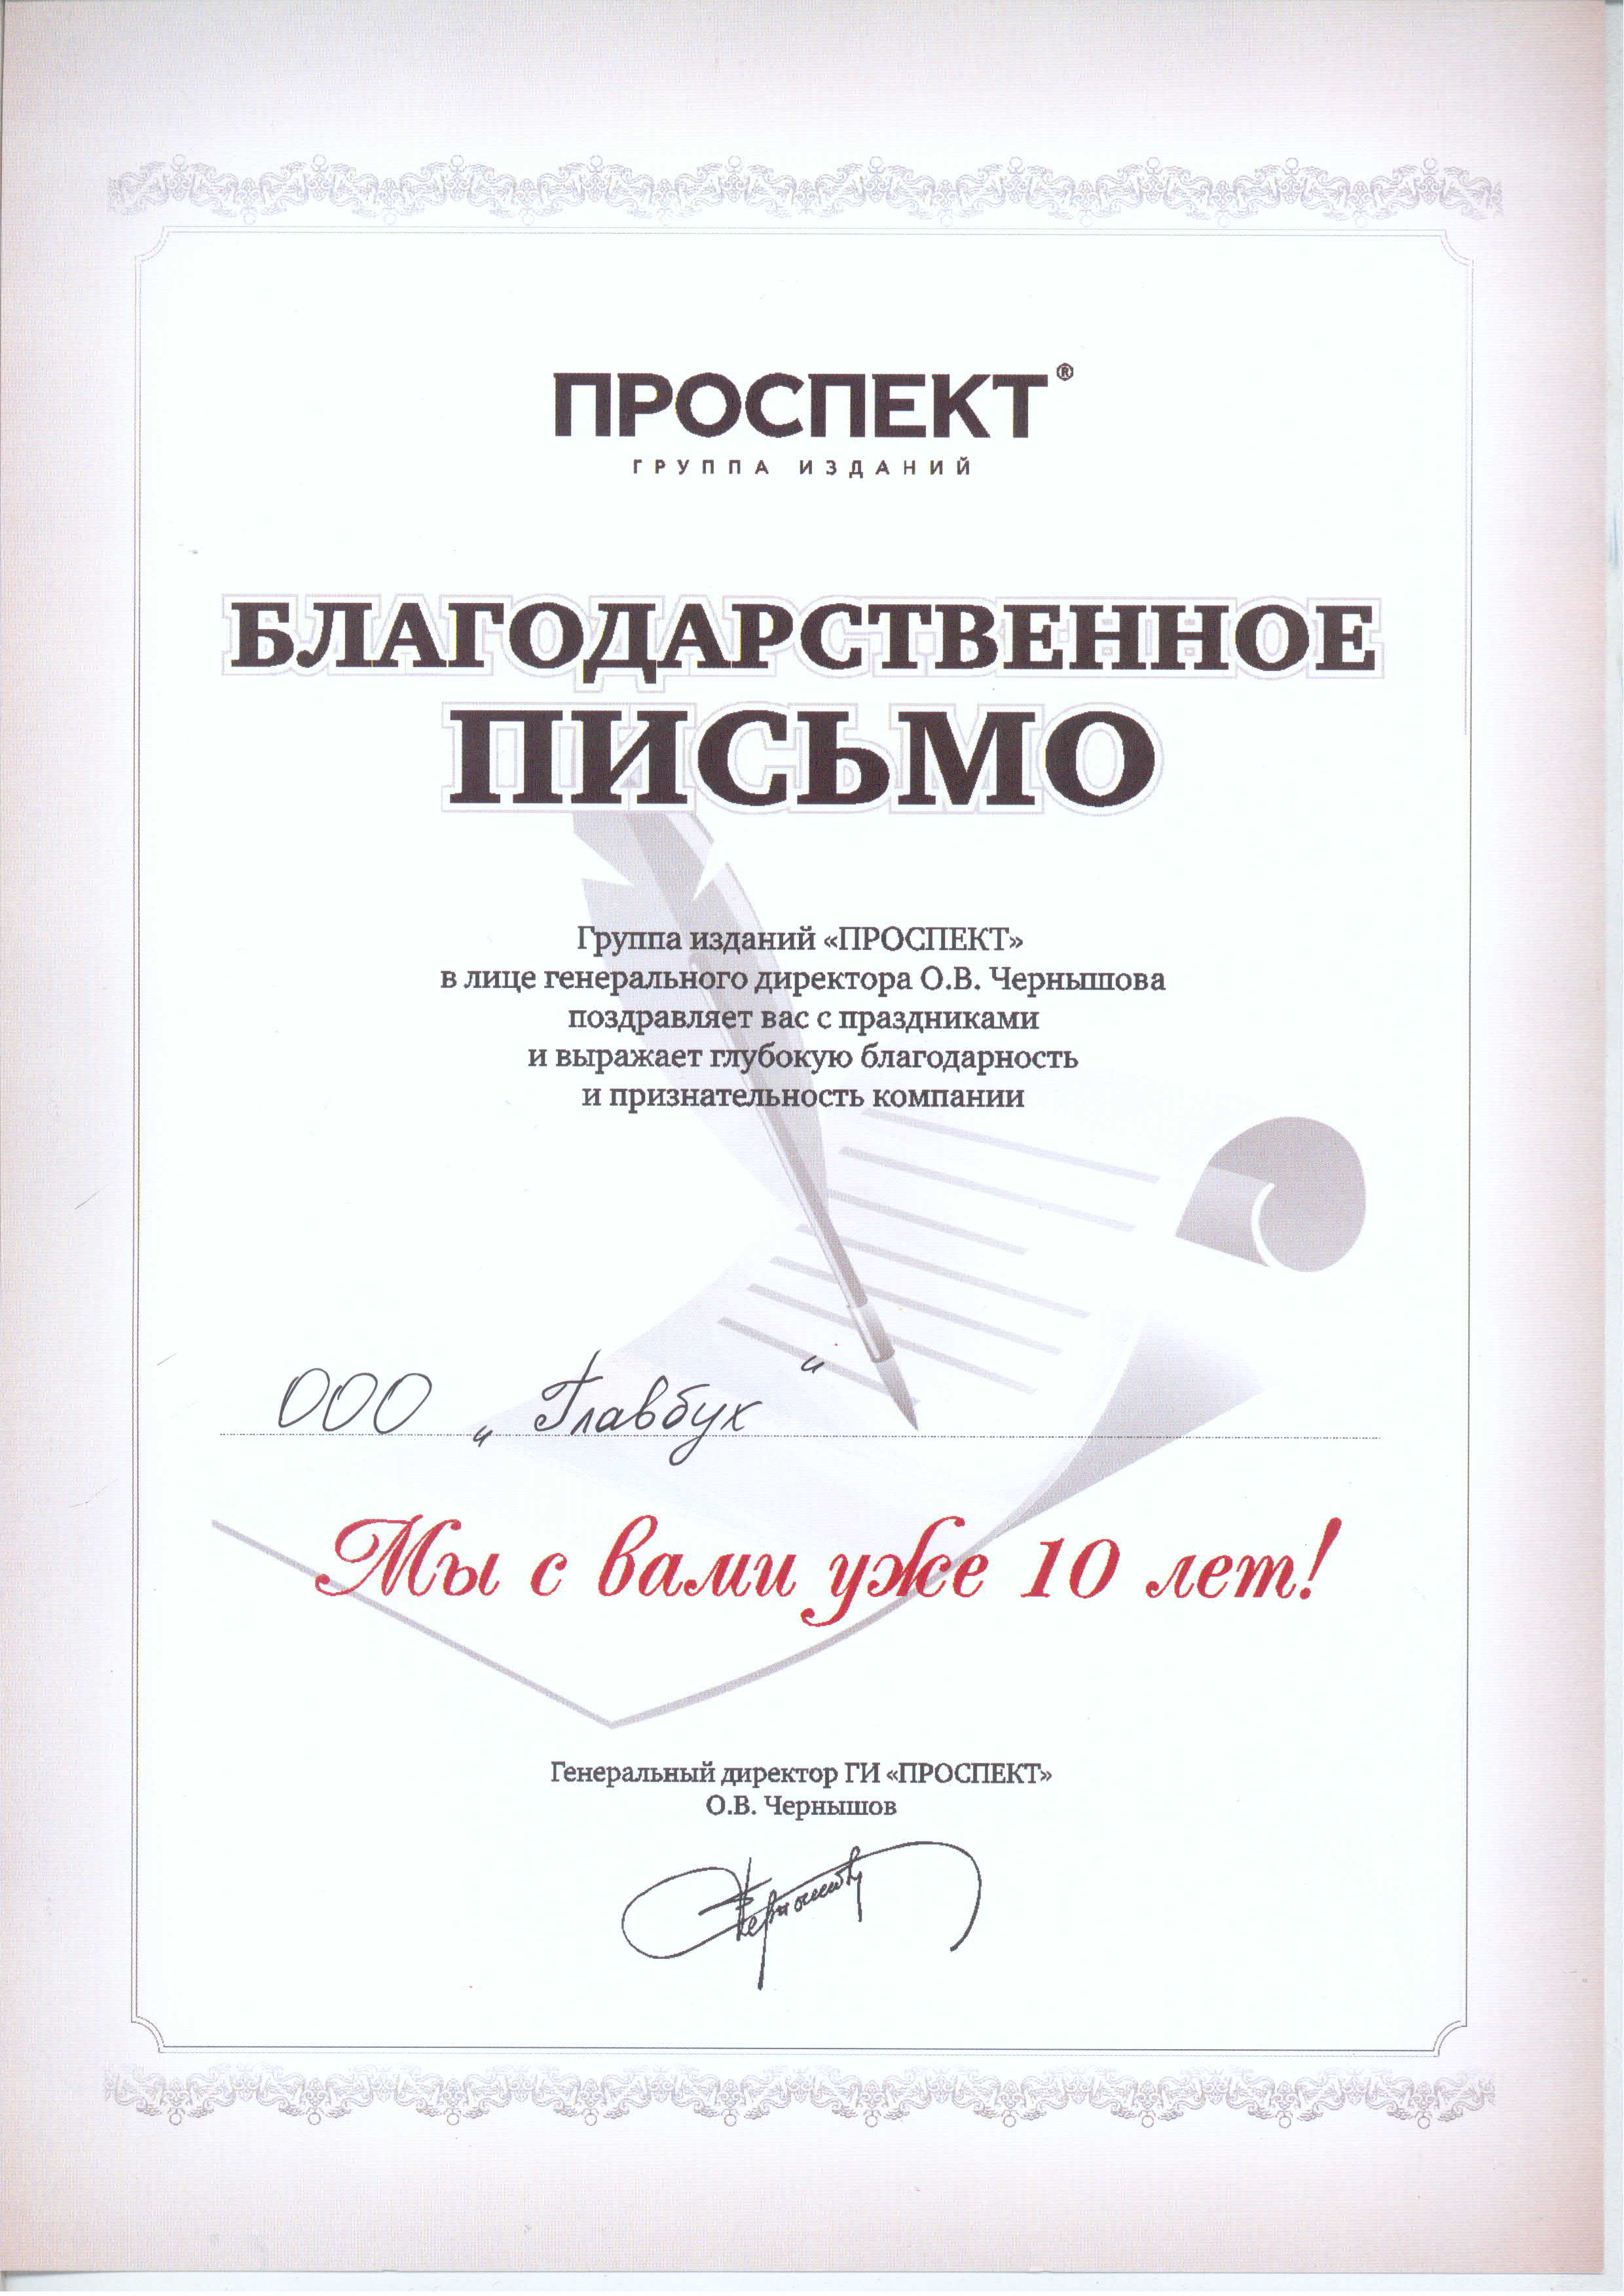 ПРОСПЕКТ®
ГРУППА ИЗДАНИЙ
БЛАГОДАРСТВЕННОЕ
ПИСЬМО
Группа изданий «ПРОСПЕКТ»
в лице генерального директора О.В. Чернышова
поздравляет вас с праздниками
и выражает глубокую благодарность
и признательность компании
ООО „Главбух“
Мы с вами уже 10 лет!
Генеральный директор ГИ «ПРОСПЕКТ»
О.В. Чернышов